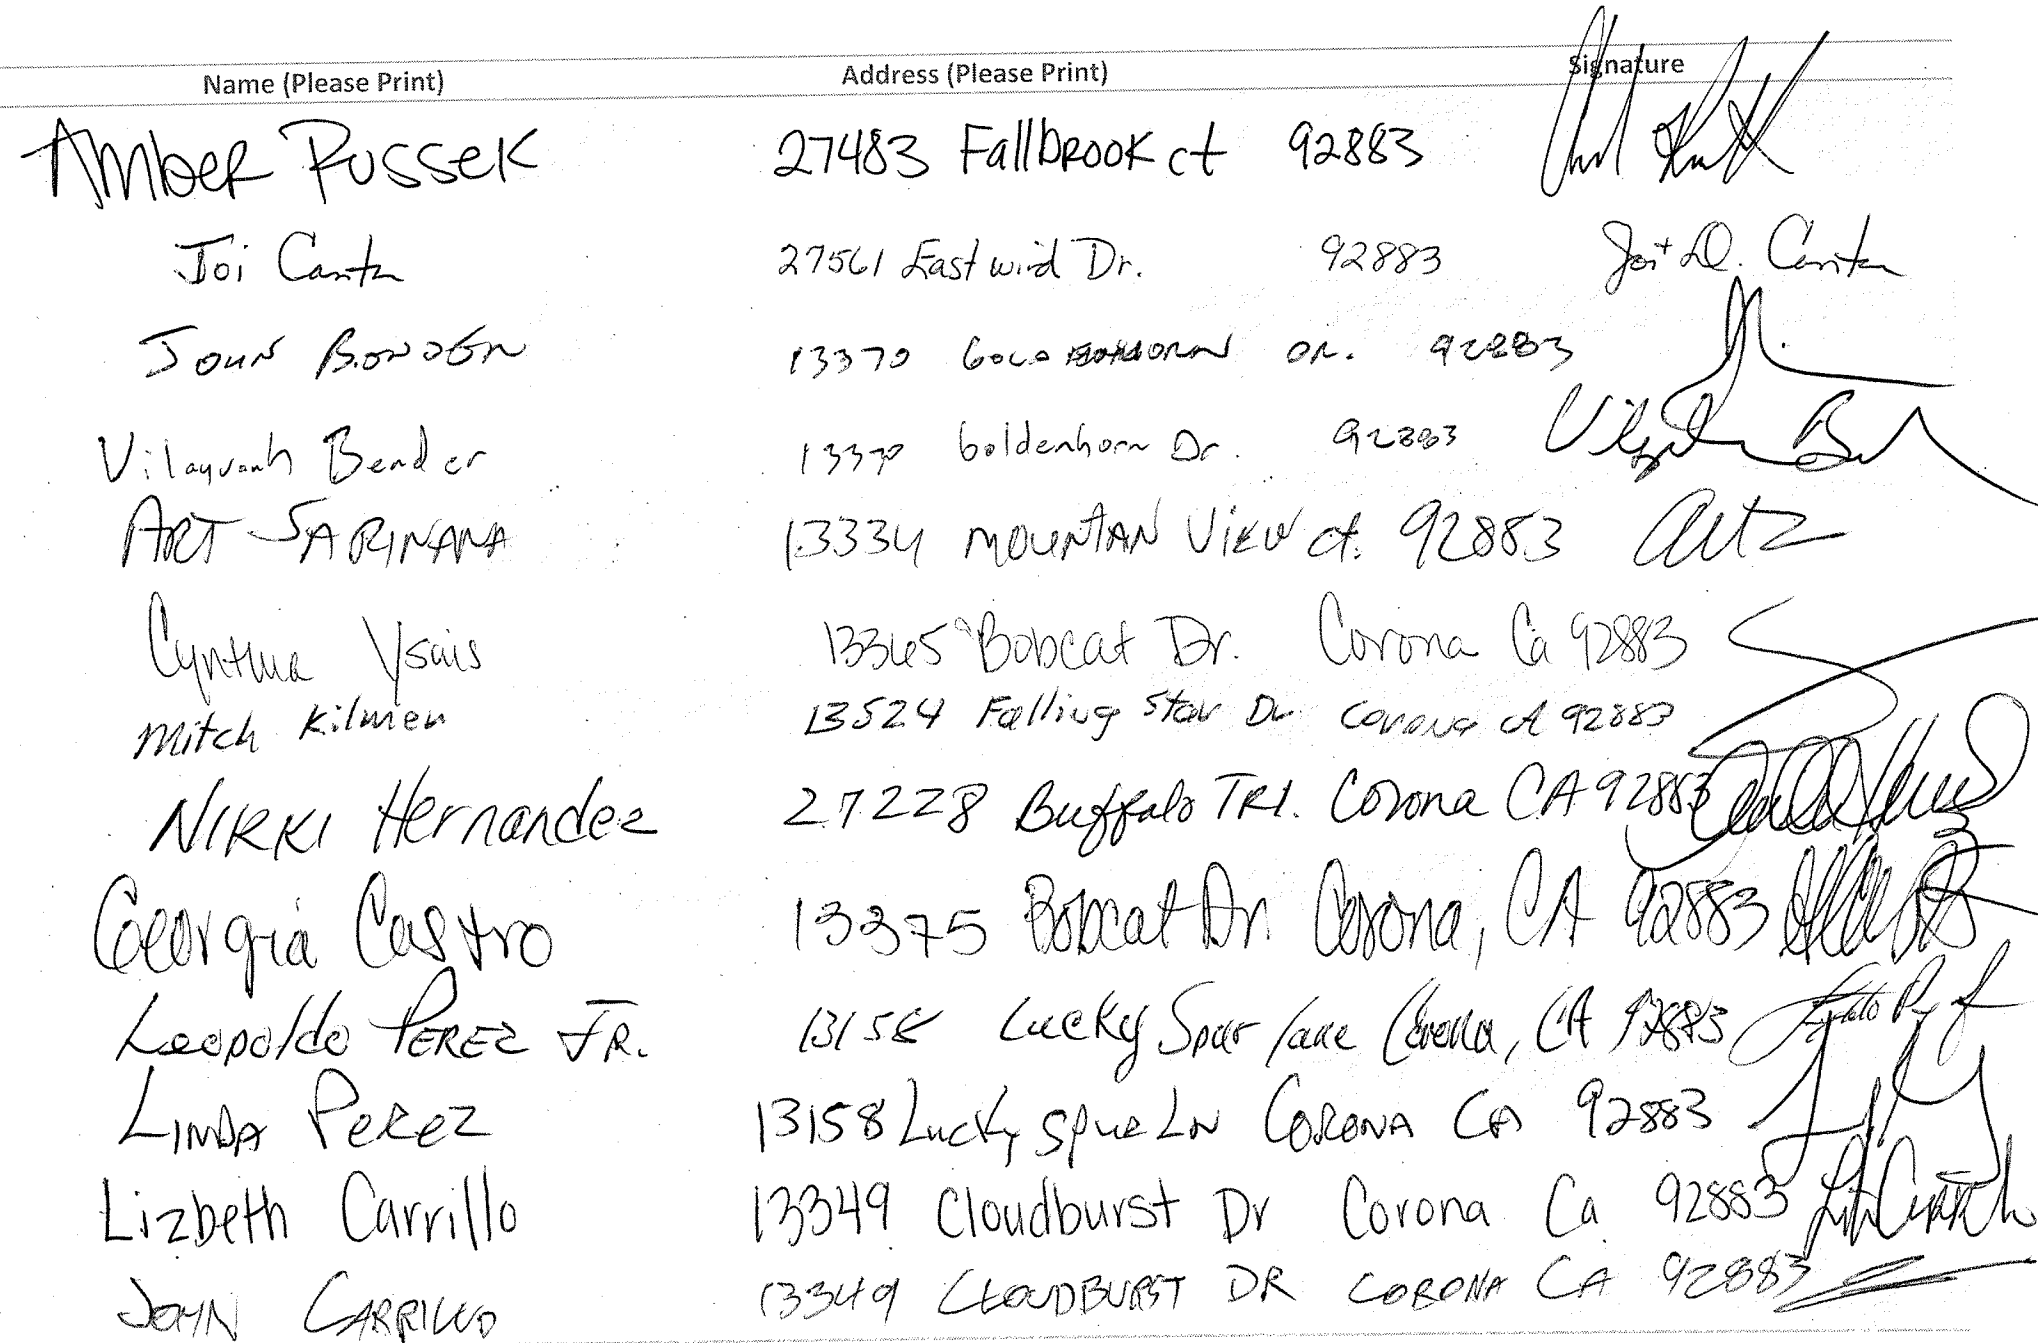 Name (Please Print) Address (Please Print) Signature
Amber Russek 27483 Fallbrook ct 92883
Joi Canta 27561 Eastwind Dr. 92883
John 13370 DR. 92883
Bender 13370 Goldenhorn Dr. 92883
ART SARINANA 13334 MOUNTAN VIEW ct. 92883
Cynthia Ysais 13365 Bobcat Dr. Corona Ca 92883
Mitch Kilmer 13524 Falling Star Dr Corona CA 92883
NIKKI Hernandez 27228 Buffalo TRl. Corona CA 92883
Georgia Castro 13375 Bobcat Dr. Corona, CA 92883
Leopoldo PEREZ JR. 13158 Lucky Spur lane Corona, CA 92883
LINDA PEREZ 13158 Lucky LN CORONA CA 92883
Lizbeth Carrillo 13349 Cloudburst Dr Corona Ca 92883
JOHN CARRILLO 13349 CLOUDBURST DR CORONA CA 92883